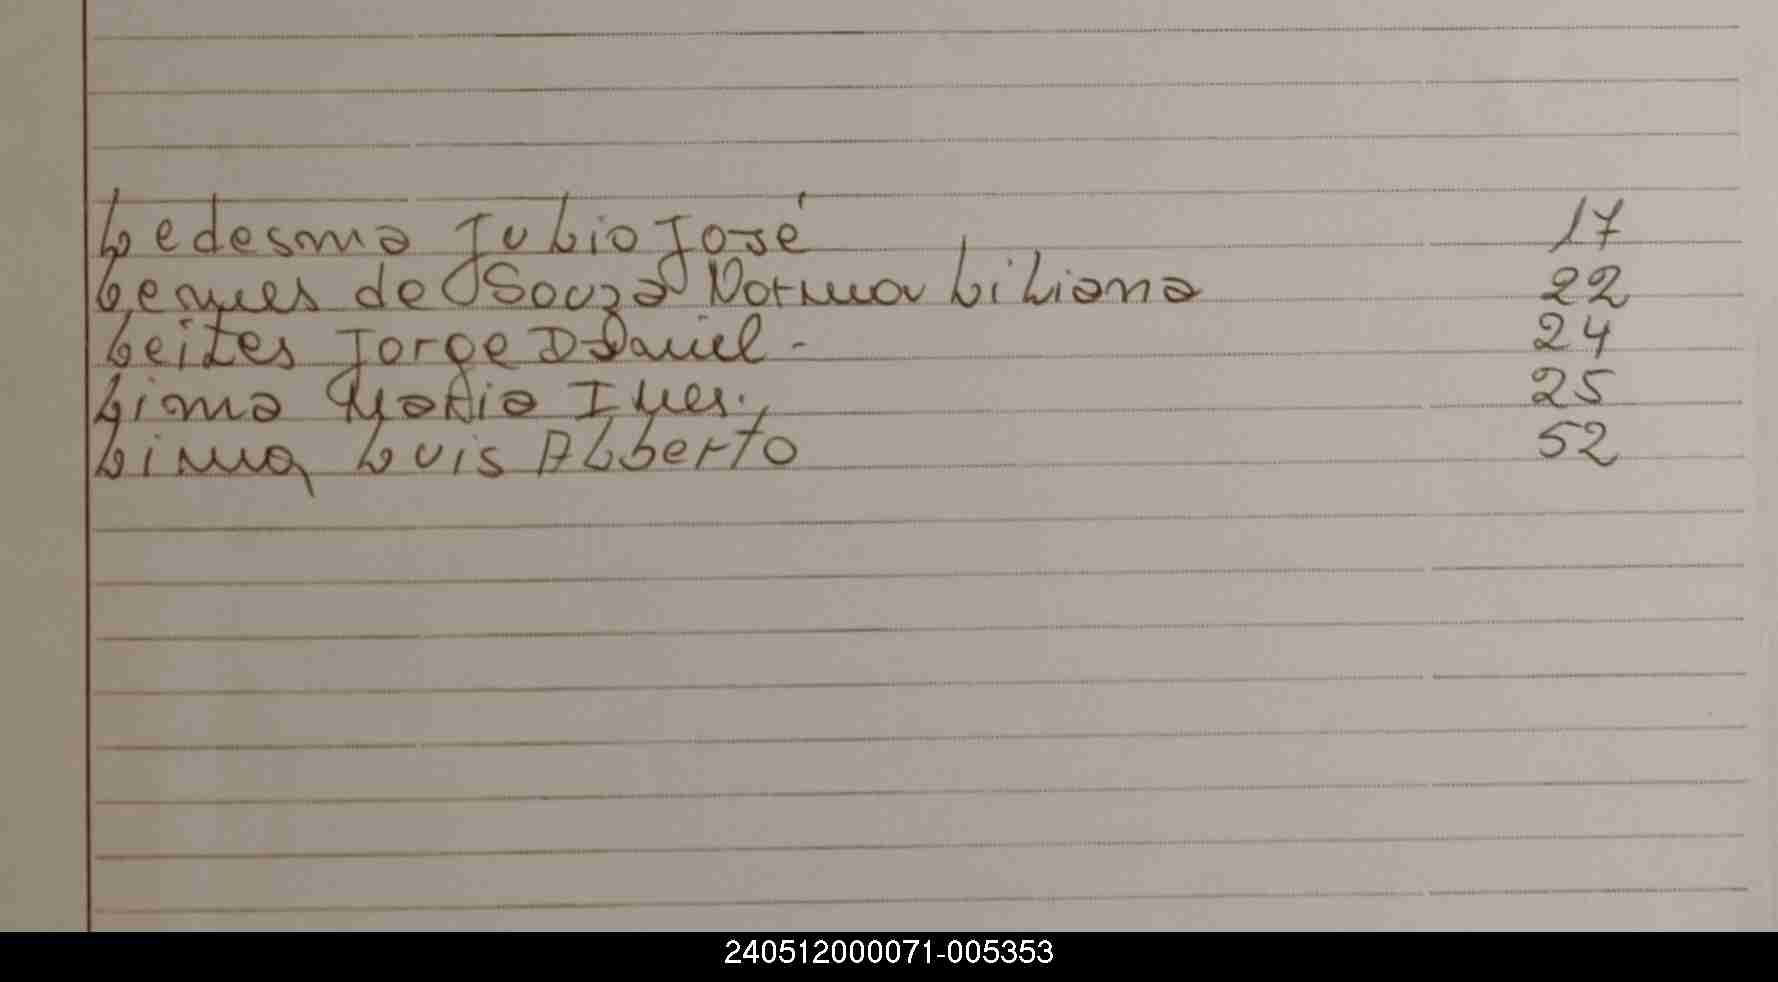 Ledesma Julio José 17
Lemes de Souza Norma Liliana 22
Leites Jorge D Daniel - 24
Lima María Ines. 25
Lima Luis Alberto 52
240512000071-005353